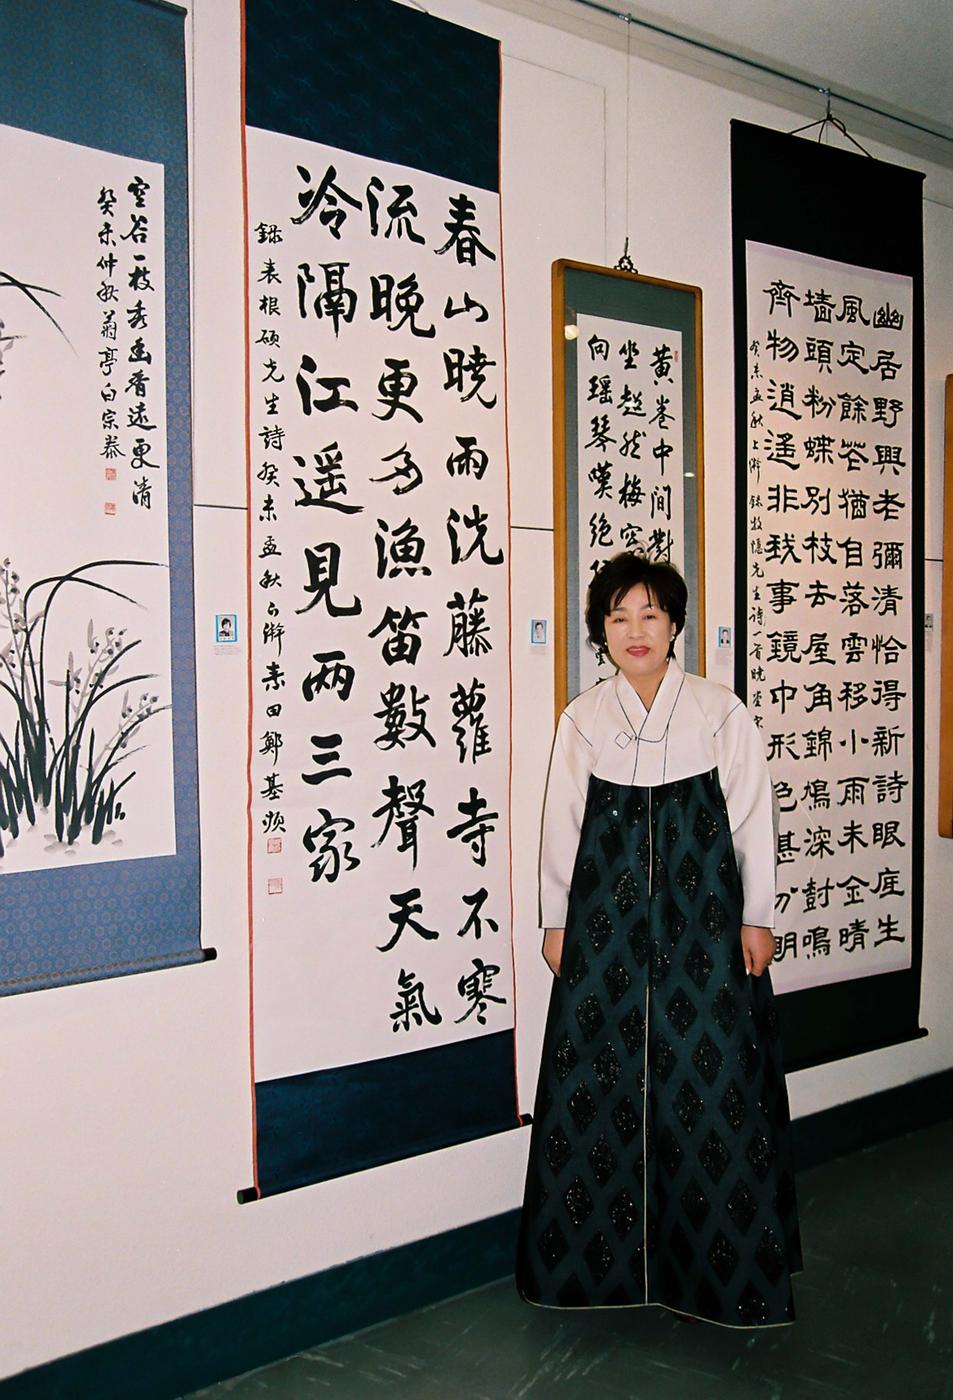 空谷一枝秀幽香遠更清
癸未仲秋菊亭白宗恭
春山暁雨洗藤蘿寺不寒
流晩更多漁笛數聲天氣
冷隔江遥見兩三家
録表根碩先生詩癸未孟秋上澣素田鄭基順
黄卷中間對
坐超然梅窓
向瑶琴嘆絶
幽居野興老彌清恰得新詩眼底生
風定餘花猶自落雲移小雨未全晴
墻頭粉蝶別枝去屋角錦鳩深樹鳴
齊物逍遥非我事鏡中形色甚分明
癸未孟秋上澣録牧隱先生詩一首